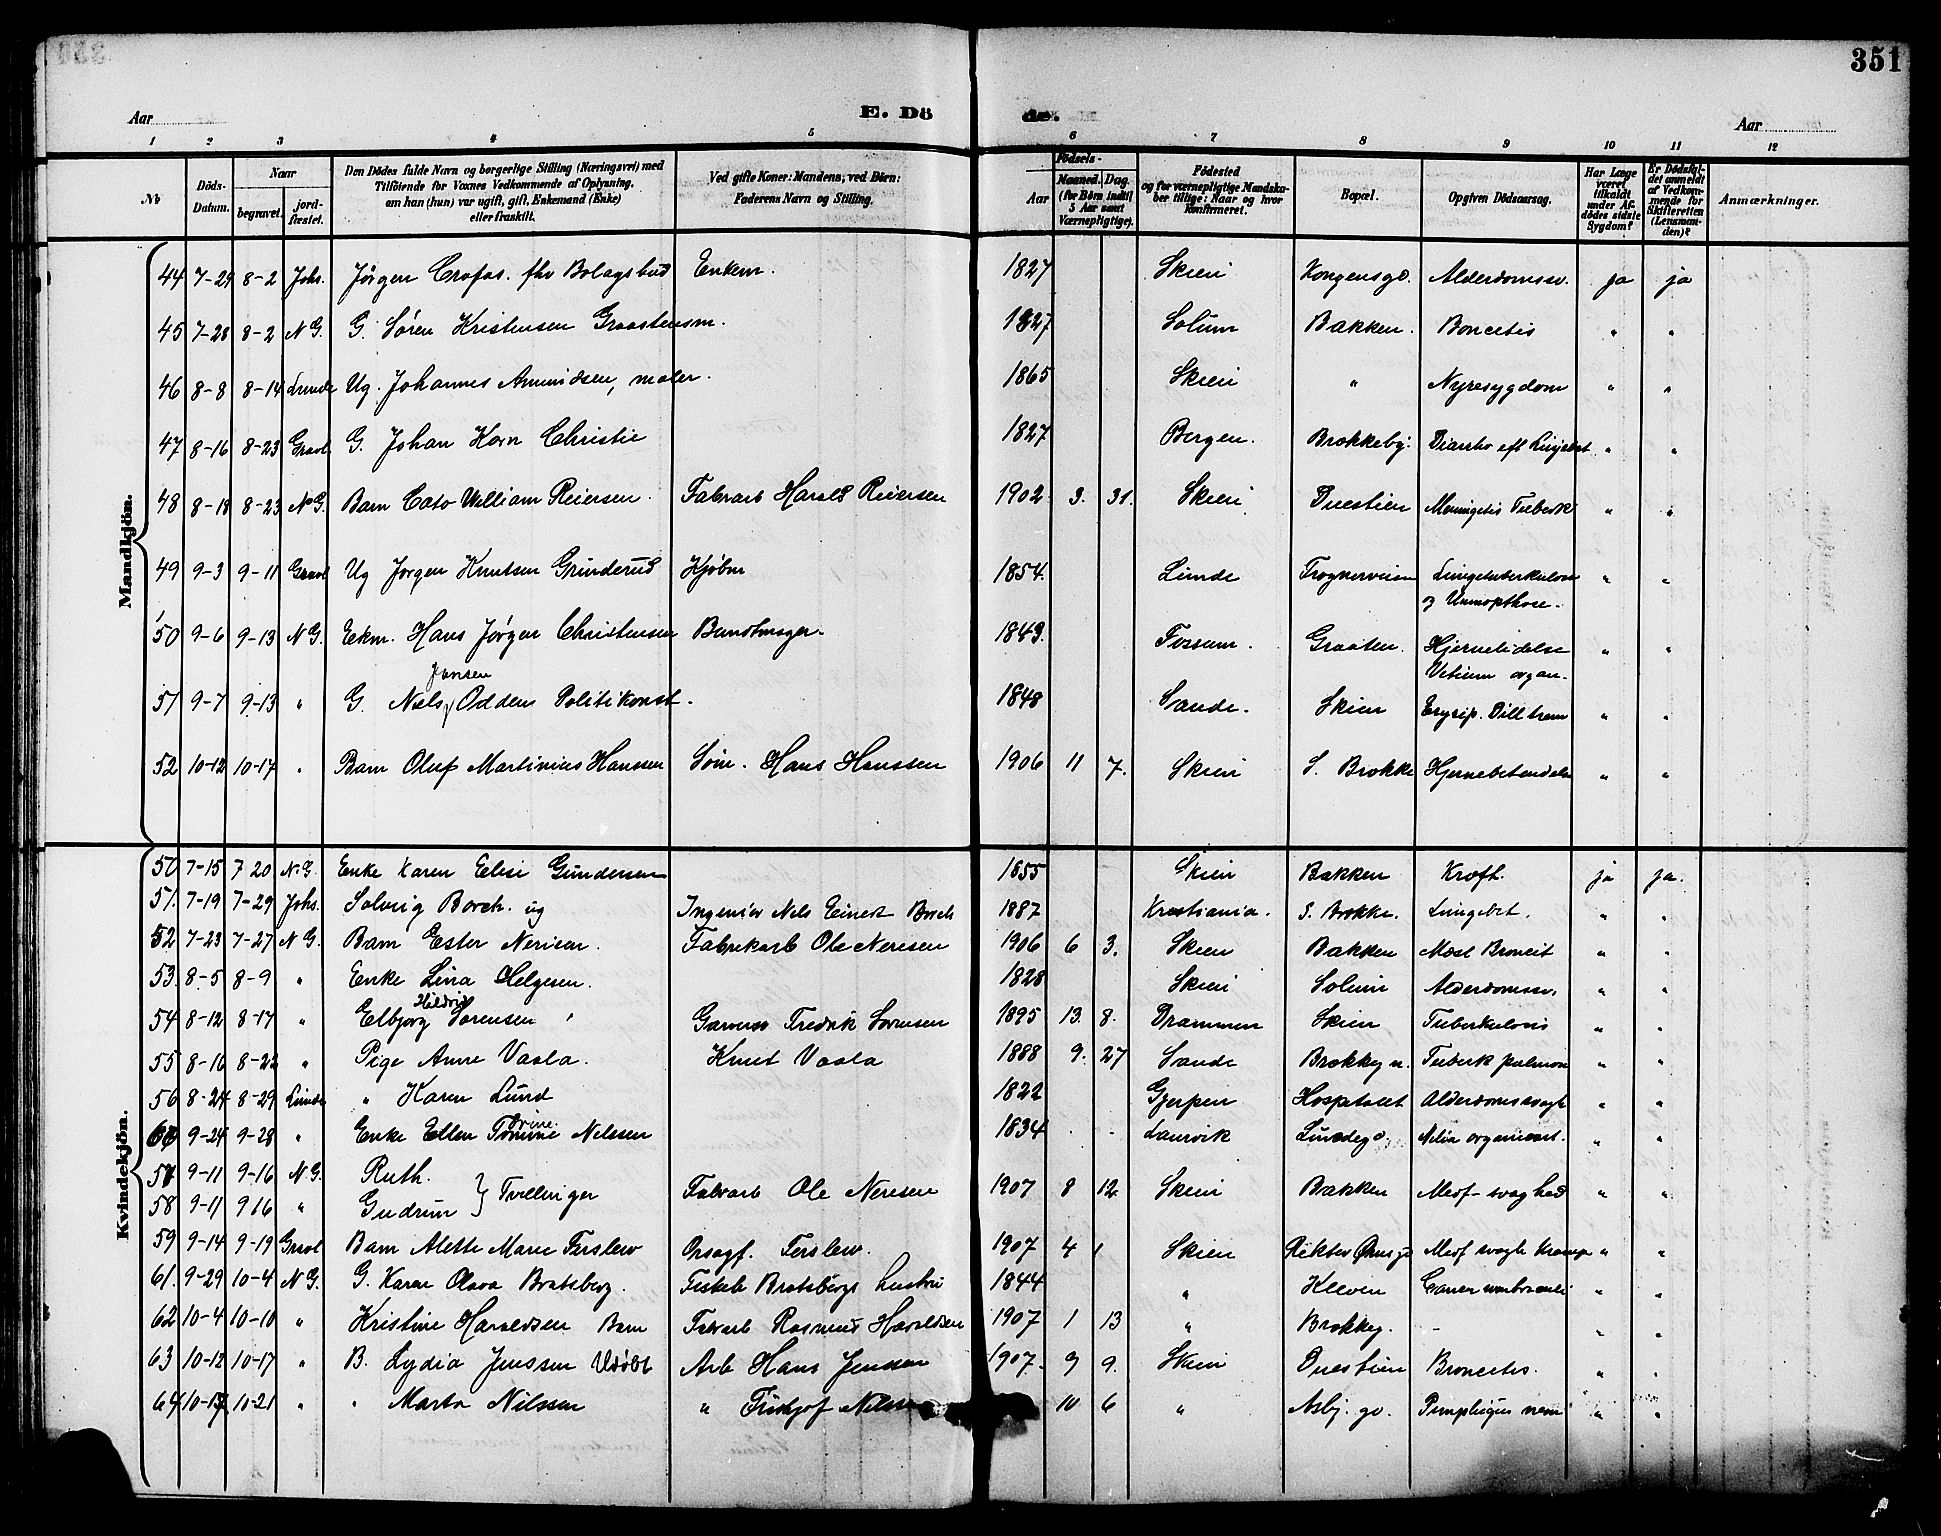 351
Aar E. Dö de. Aar
1 2 3 4 5 6 7 8 9 10 11 12
No Döds-Datum. Naar begravet. jord-fæstet. Den Dödes fulde Navn og borgerlige Stilling (Næringsvei) med Tilföiende for Voxnes Vedkommende af Oplysning, om han (hun) var ugift, gift, Enkemand (Enke) eller fraskilt. Ved gifte Koner: Mandens, ved Börn: Faderens Navn og Stilling. Födsels- Aar Maaned. Dag (for Börn indtil 5 Aar samt Værnepligtige). Födested og for værnepligtige Mandskaber tillige: Naar og hvor konfirmeret. Bopæl. Opgiven Dödsaarsag. Har Læge været tilkaldt under Afdödes sidste Sygdom? Er Dödsfaldet anmeldt af Vedkommende for Skifteretten (Lensmanden)? Anmærkninger.
Mandkjön.
44 7-29 8-2 Johs. Jörgen Crofas. fhv Bolagsbud Enkem. 1827 Skien Kongensgd. Alderdomssv. ja ja
45 7-28 8-2 N G. G. Sören Kristensen Graastensm. 1827 Solum Bakken. Boncetis " "
46 8-8 8-14 Lunde Ug. Johannes Amundsen, maler. 1865 Skien " Nyresygdom " "
47 8-16 8-23 Gravl G. Johan Korn Christie 1827 Bergen. Brekkeby. Diarrho eft " "
48 8-18 8-23 N G. Barn Cato William Reiersen. Fabrarb Harald Reiersen 1902 3. 31. Skien Duestien Meningitis Tuberk " "
49 9-3 9-11 Gravl Ug Jorgen Knutsen Grinderud Kjøbm 1854. Lunde Trognerveien Lungetuberkulose " "
og
50 9-6 9-13 N G. Ekm. Hans Jörgen Christensen Bundtmager. 1843. Fossum. Graaten. Hjernelidelse " "
Vitium organ.
Jansen
51 9-7 9-13 " G. Niels Odden Politikonst. 1848 Sande. Skien Erysip. Dill trem " "
52 10-12 10-17 " Barn Oluf Martinius Hanssen Søm. Hans Hanssen 1906 11 7. Skien S. Brekke Hjernebetendelse " "
Kvindekjön.
50 7-15 7 20 N.G. Enke Karen Elise Gundersen 1855 Skien Bakken Kræft. ja ja.
51. 7-19 7-29 Johs. Solveig Borch. ug Ingeniør Nels Einert Borch 1887 Kristiania. S. Brekke. Lungebet. " "
52 7-23 7-27 N G. Barn Ester Nerisen. Fabrikarb Ole Neresen 1906 6 3. Skien Bakken Mæsl Broncit " "
53. 8-5 8-9 " Enke Lina Helgesen. 1828 Skien Solum Alderdomssv. " "
Hildrid
54 8-12 8-17 " Elbjorg Sorensen Garver Fredrik Sorensen 1895 13. 8. Drammen Skien Tuberkulosis " "
55 8-16 8-22 " Pige Anne Vaala. Knut Vaala 1888 9. 27 Sande Brekkeg n. Tuberk pulmon " "
56 8-24 8-29 Lunde " Karen Lund 1822 Gjerpen Hospitalet Alderdomssvagh " "
Trine.
60 9-24 9-28 " Enke Ellen Tomine Nilssen 1834 Laurvik Lundegd. organicart. " "
57 9-11 9-16 N G. Ruth. } Tvillinger Fabrarb Ole Neresen 1907 8 12. Skien Bakken Medf-svaghed " "
58 9-11 9 16 " Gudrun
59 9-14 9-19 Gravl Barn Alette Marie Ferslew Opsagf. Ferslew. 1907 4 1 Skien Rektor Ørnsgd Medf svagh Krampe " "
61. 9-29 10-4 N G. G. Karen Olava Bratsberg. Fiskeh Bratsbergs hustru 1844 " Kleven Cancer " "
62 10-4 10-10 " Kristine Haraldsen Barn Fabrarb Rasmus Haraldsen 1907 1 13 " Brekkeg. - " "
63 10-12 10-17 " B. Lydia Jenssen Udøbt Arb Hans Jenssen 1907. 9 9. Skien Duestien Broncetis. " "
64 10-17 10-21 " " Marta Nilssen " Fridtjof Nilssen 10 6 " Asbj. gd. Pemphigus neon " "